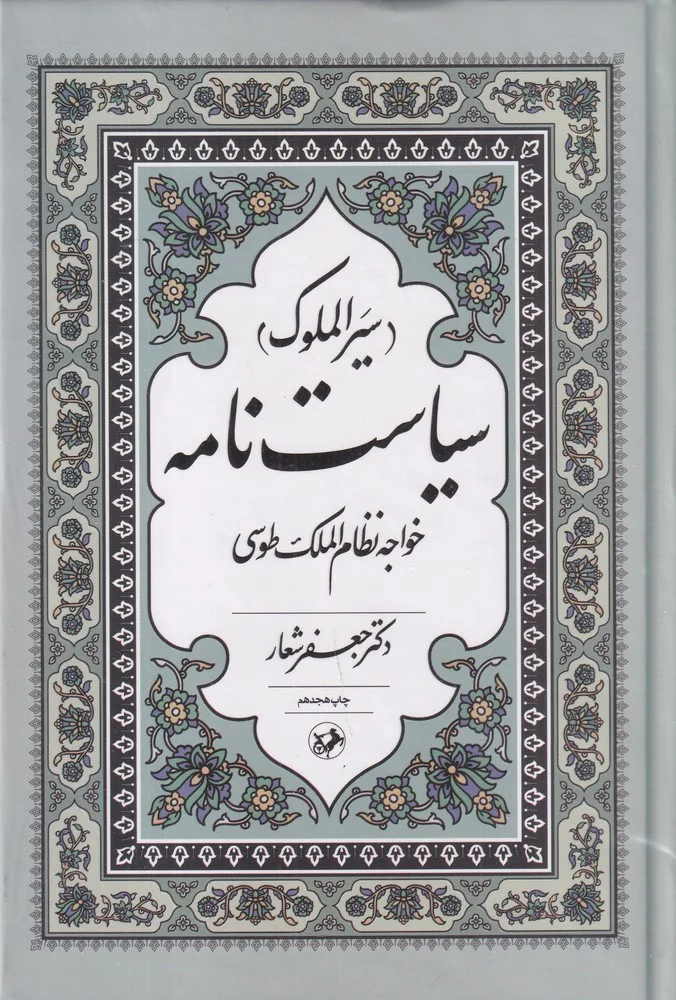 (سیَرالملوک)
سیاست‌نامه
خواجه نظام‌الملک طوسی
دکتر جعفر شعار
چاپ هجدهم